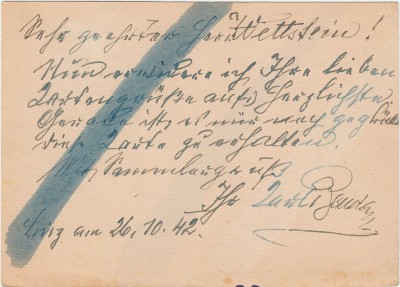 Sehr geehrter Herr Wettstein!
Nun erwidere ich Ihre lieben
Kartengrüße aufs herzlichste.
Gerade ist es mir noch geglückt
diese Karte zu erhalten.
Mit Sammlergruß
Ihr Karl
Linz am 26.10.42.